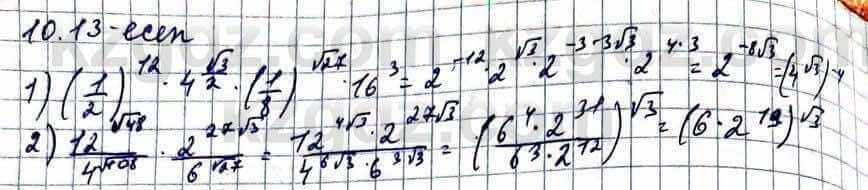 10.13-есеп
1) (1/2)^12 · 4^(√3/2) · (1/8)^√27 · 16^3 = 2^-12 · 2^√3 · 2^(-3·3√3) · 2^(4·3) = 2^(-8√3) = (4^√3)^-4
2) 12^√48 / 4^√108 · 2^(27√3) / 6^√27 = 12^(4√3) · 2^(27√3) / 4^(6√3) · 6^(3√3) = (6^4 · 2^31 / 6^3 · 2^12)^√3 = (6 · 2^19)^√3